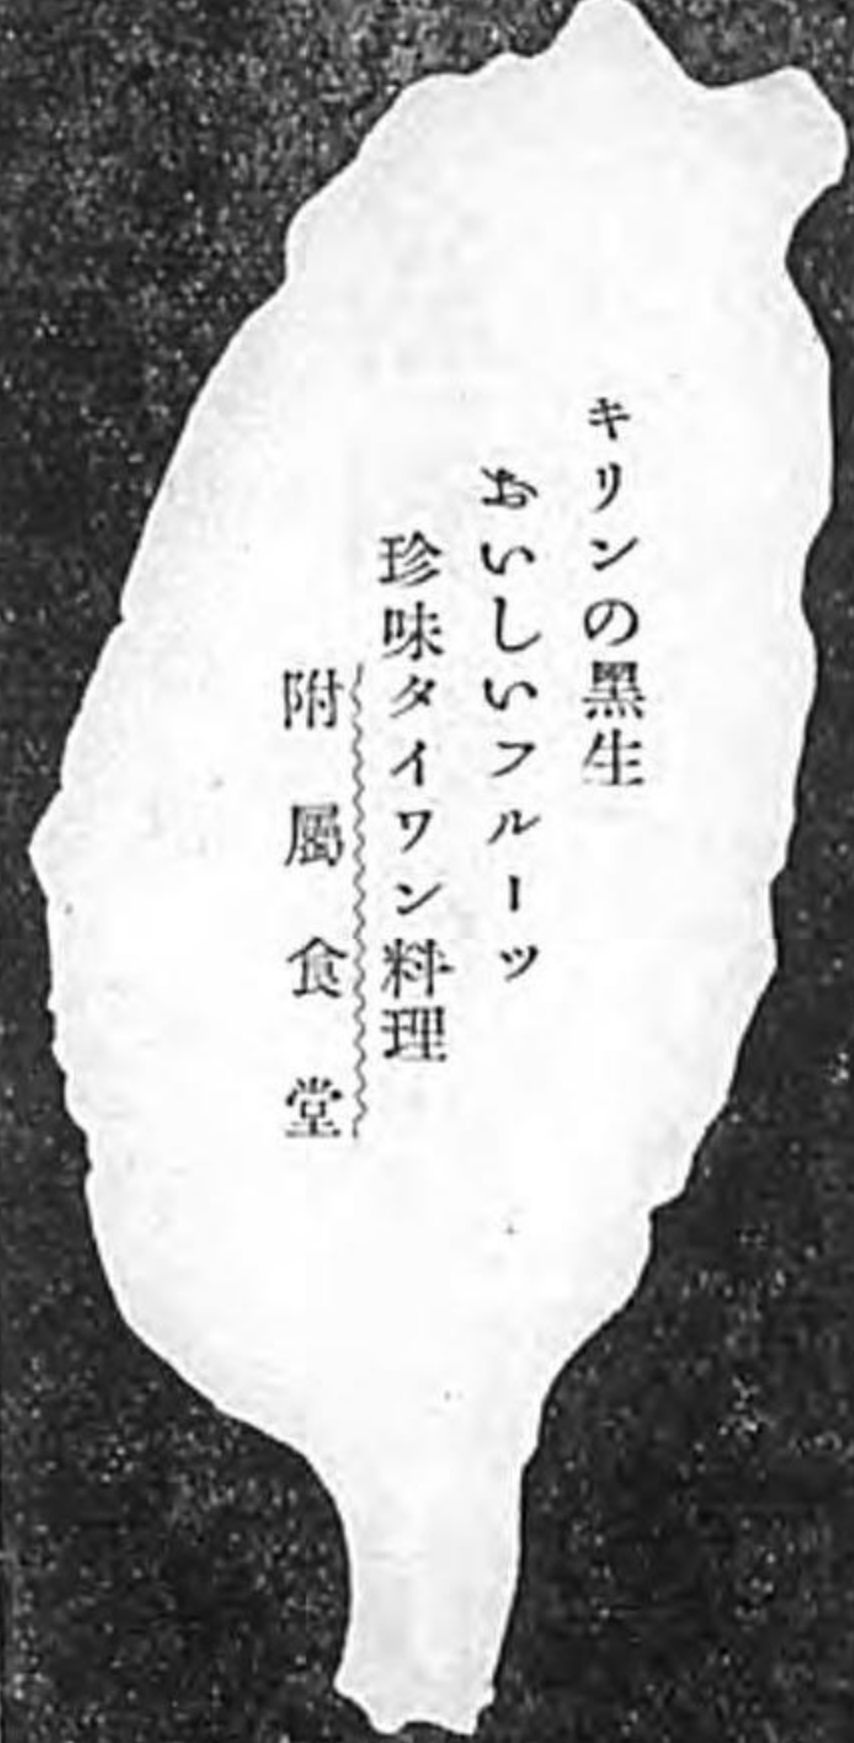 キリンの黑生
おいしいフルーツ
珍味タイワン料理
附屬食堂